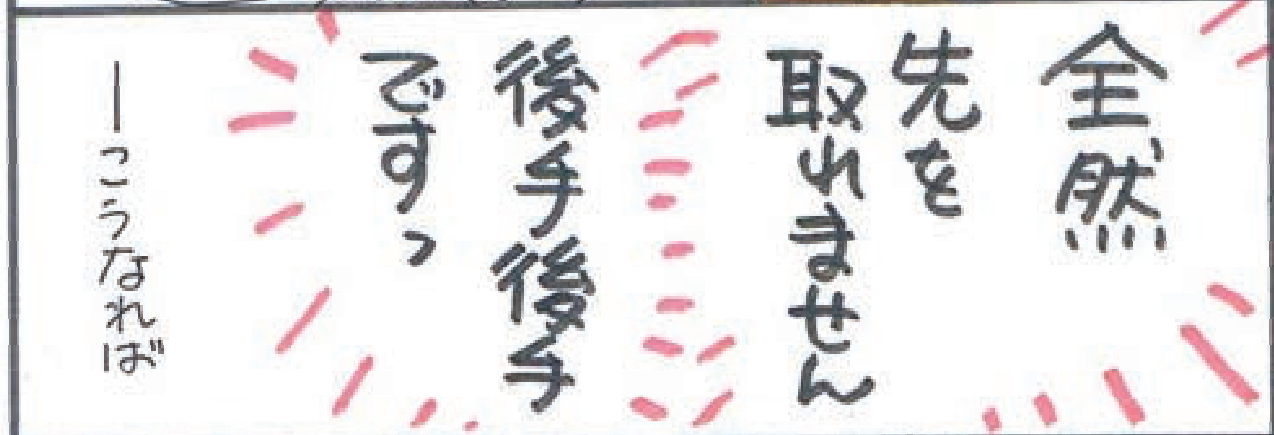 全然
先を
取れません
後手後手
ですっ
ーこうなれば